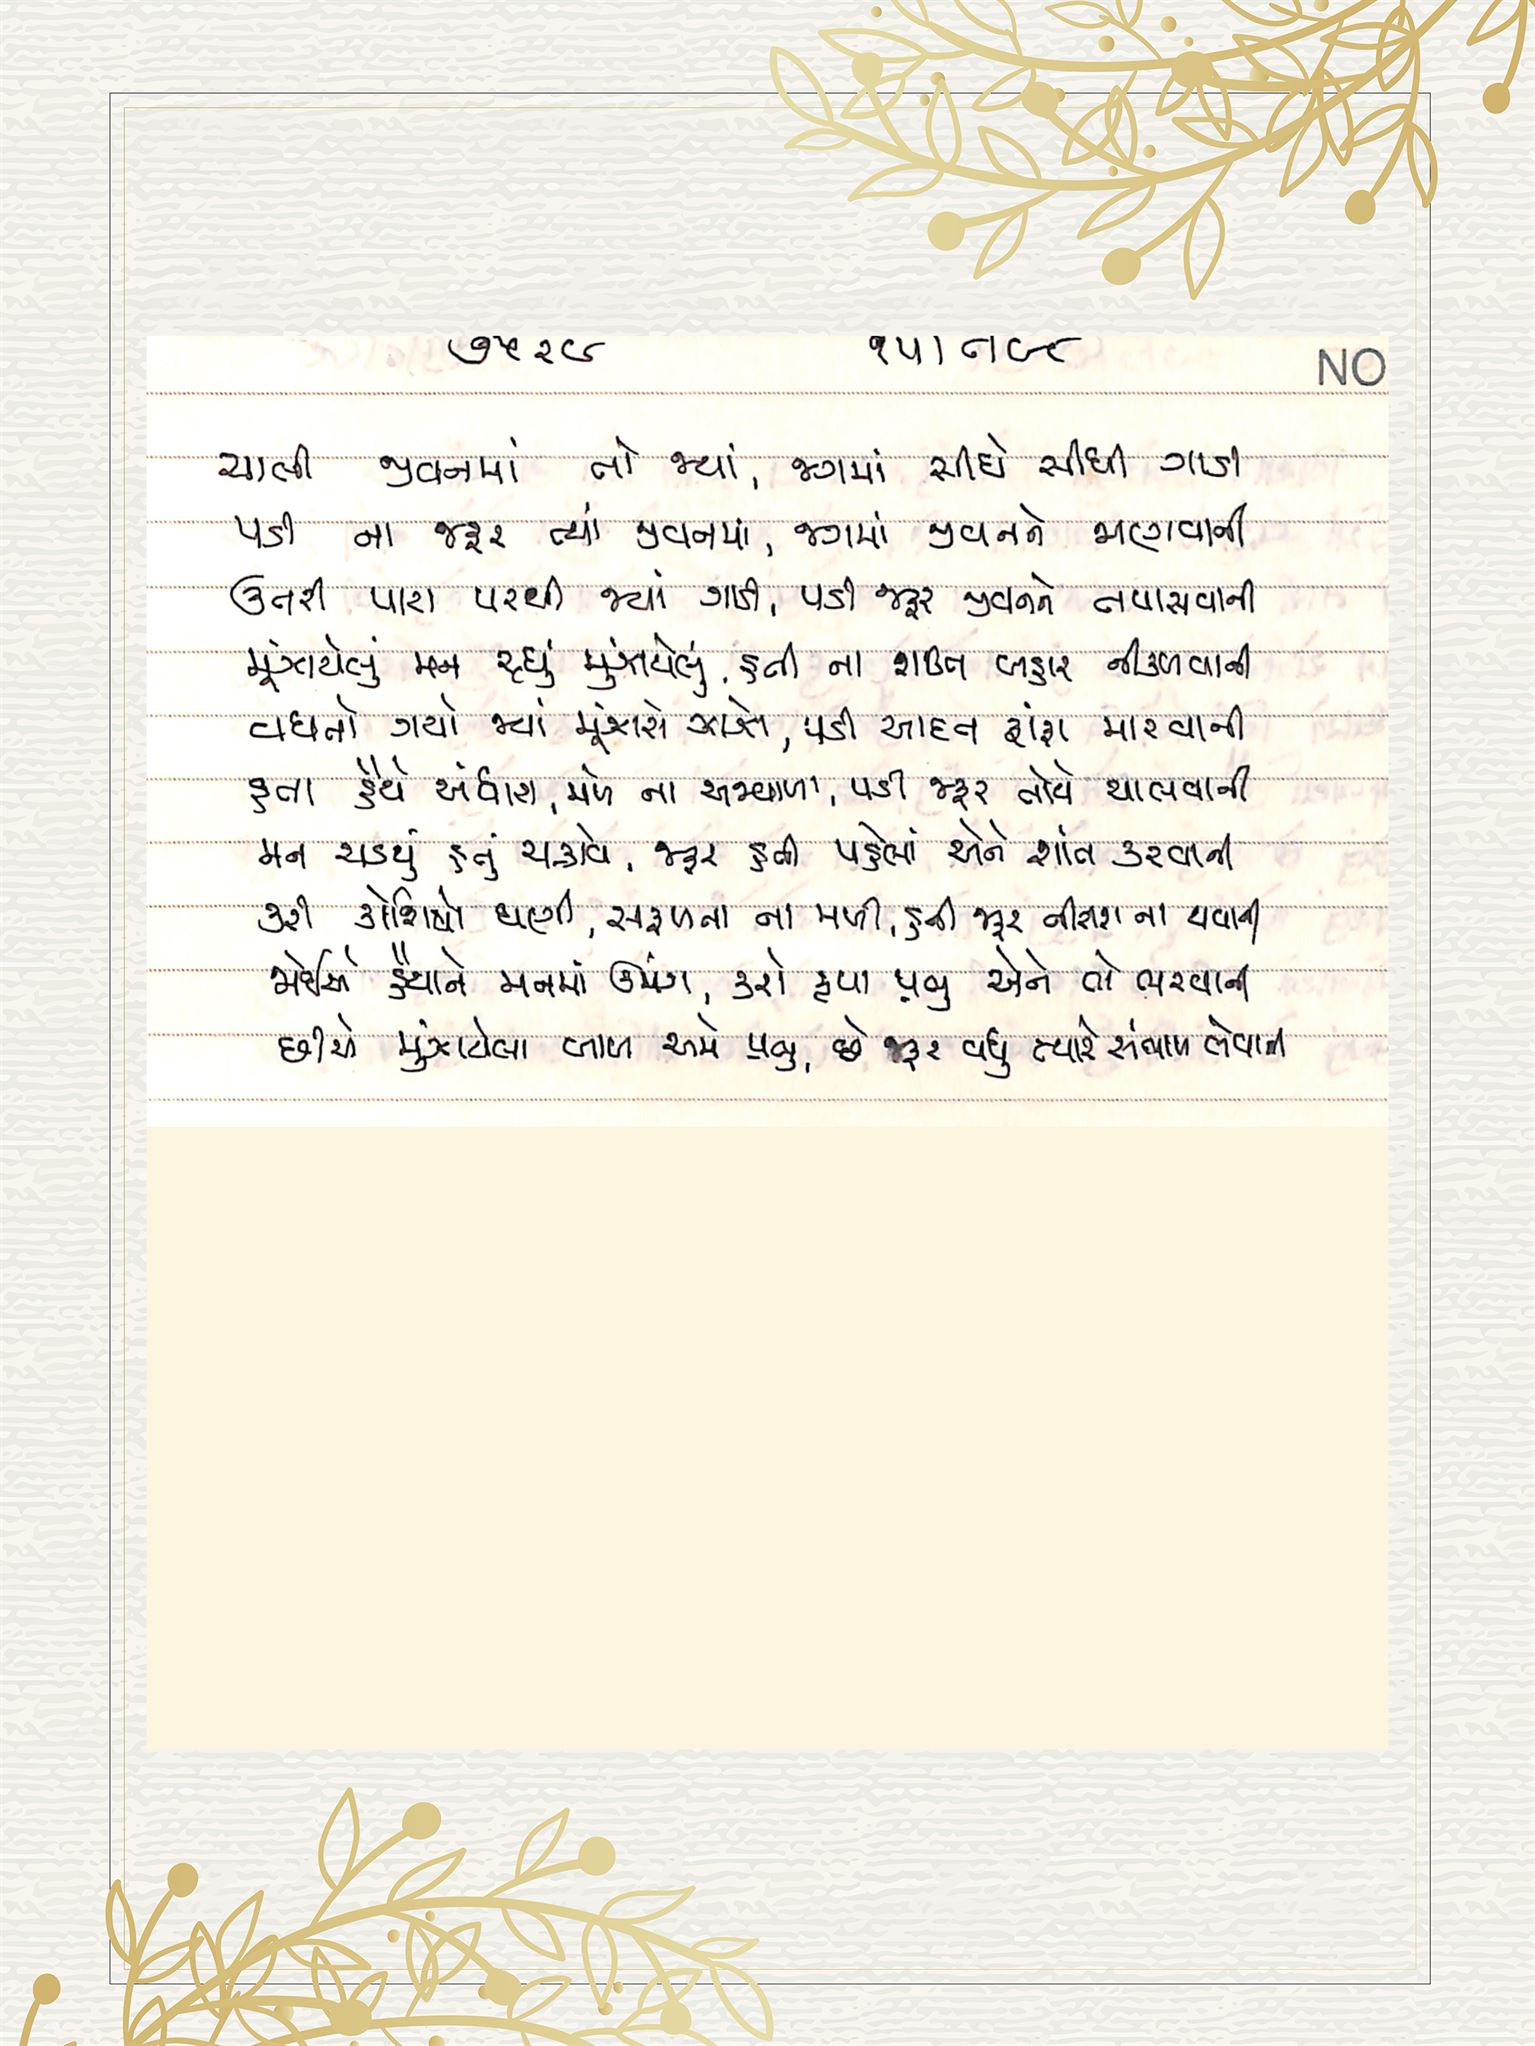 ૭૫૨૯ ૧૫।
NO
ચાલી જીવનમાં તો જ્યાં, જગમાં સીધે સીધી ગાડી
પડી ના જરૂર ત્યાં જીવનમાં, જગમાં જીવનને જાણવાની
ઉતરી પાટા પરથી જ્યાં ગાડી, પડી જરૂર જીવનને તપાસવાની
મૂંઝાયેલું મન રહ્યું મુંઝાયેલું, હતી ના શક્તિ બહાર નીકળવાની
વધતો ગયો જ્યાં મૂંઝારો ઝાઝો, પડી આદત ફાંફા મારવાની
હતા હૈયે અંધારા, મળે ના અજવાળા, પડી જરૂર તોયે ચાલવાની
મન ચડયું હતું ચકરાવે, જરૂર હતી પહેલાં એને શાંત કરવાની
કરી કોશિષો ઘણી, સફળતા ના મળી, હતી જરૂર નીરાશ ના થવાની
જોઈએ હૈયાને મનમાં ઉમંગ, કરો કૃપા પ્રભુ એને તો ભરવાની
છીએ મુંઝાયેલા બાળ અમે પ્રભુ, છે જરૂર વધુ ત્યારે સંભાળ લેવાની